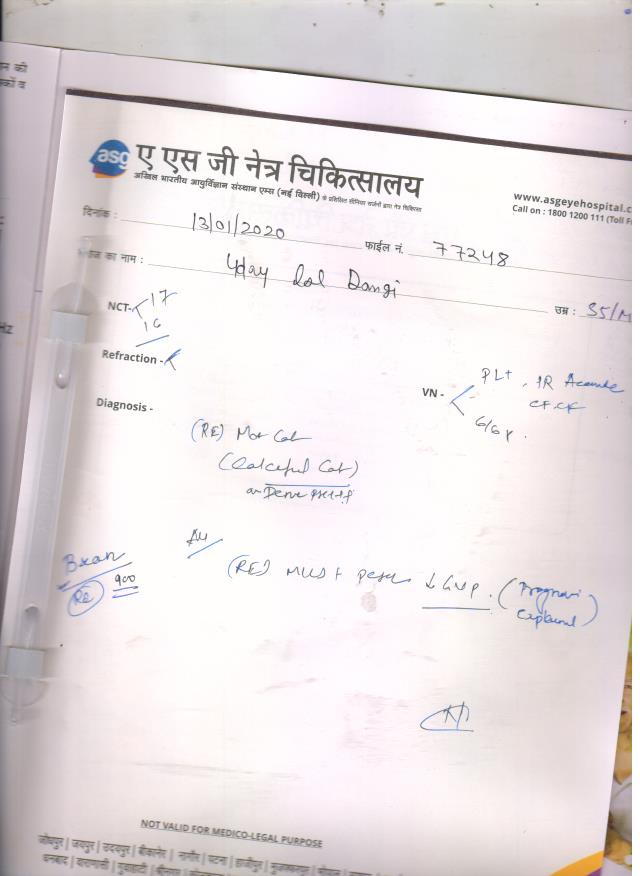 न की
कों व
asg ए एस जी नेत्र चिकित्सालय
अखिल भारतीय आयुर्विज्ञान संस्थान एम्स (नई दिल्ली) से प्रशिक्षित सीनियर सर्जनों द्वारा नेत्र चिकित्सा
www.asgeyehospital.c
Call on : 1800 1200 111 (Toll F
दिनांक : 13/01/2020 फाईल नं. 77248
का नाम : Uday Lal Dangi उम्र : 35/M
Hz
NCT- 17
16
Refraction -
VN - PL+, PR Accurate
CF.CF
6/6
Diagnosis -
(RE) Mat Cat
(Calcified Cat)
Adv
Bscan
(RE) 900
(RE)
(Prognosis
Explained)
NOT VALID FOR MEDICO-LEGAL PURPOSE
जोधपुर | जयपुर | उदयपुर | बीकानेर | नागौर | पटना | हाजीपुर | मुजफ्फरपुर | भोपाल
धनबाद | वाराणसी | गुवाहाटी | श्रीनगर